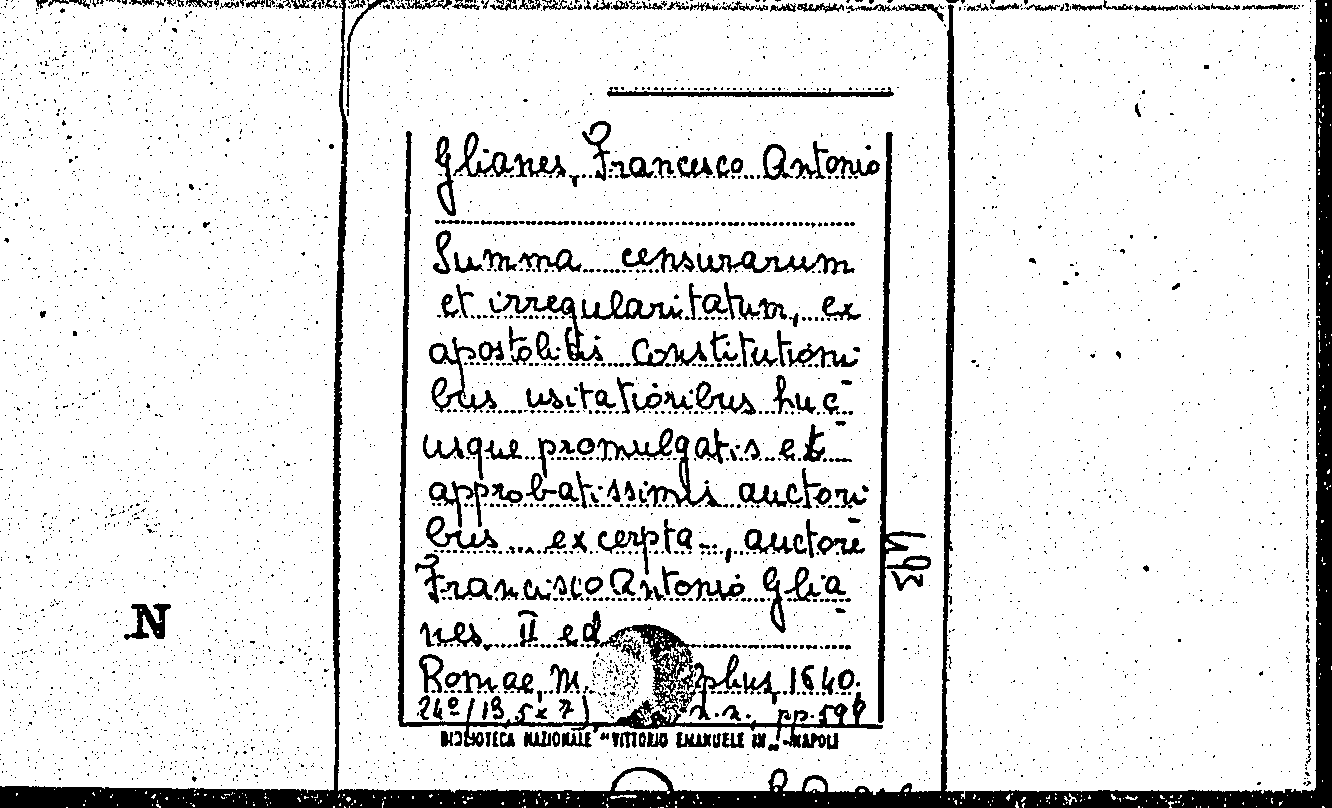 Glianes, Francesco Antonio
Summa censurarum
et irregularitatum, ex
apostolicis constitutioni-
bus usitatioribus huc-
usque promulgatis et
approbatissimis auctori-
bus excerpta, auctore
Francisco Antonio Glia-
nes. II ed
Romae, M. phus, 1640.
24º (13,5x7) n.n., pp. 598
BIBLIOTECA NAZIONALE "VITTORIO EMANUELE III" - NAPOLI
N